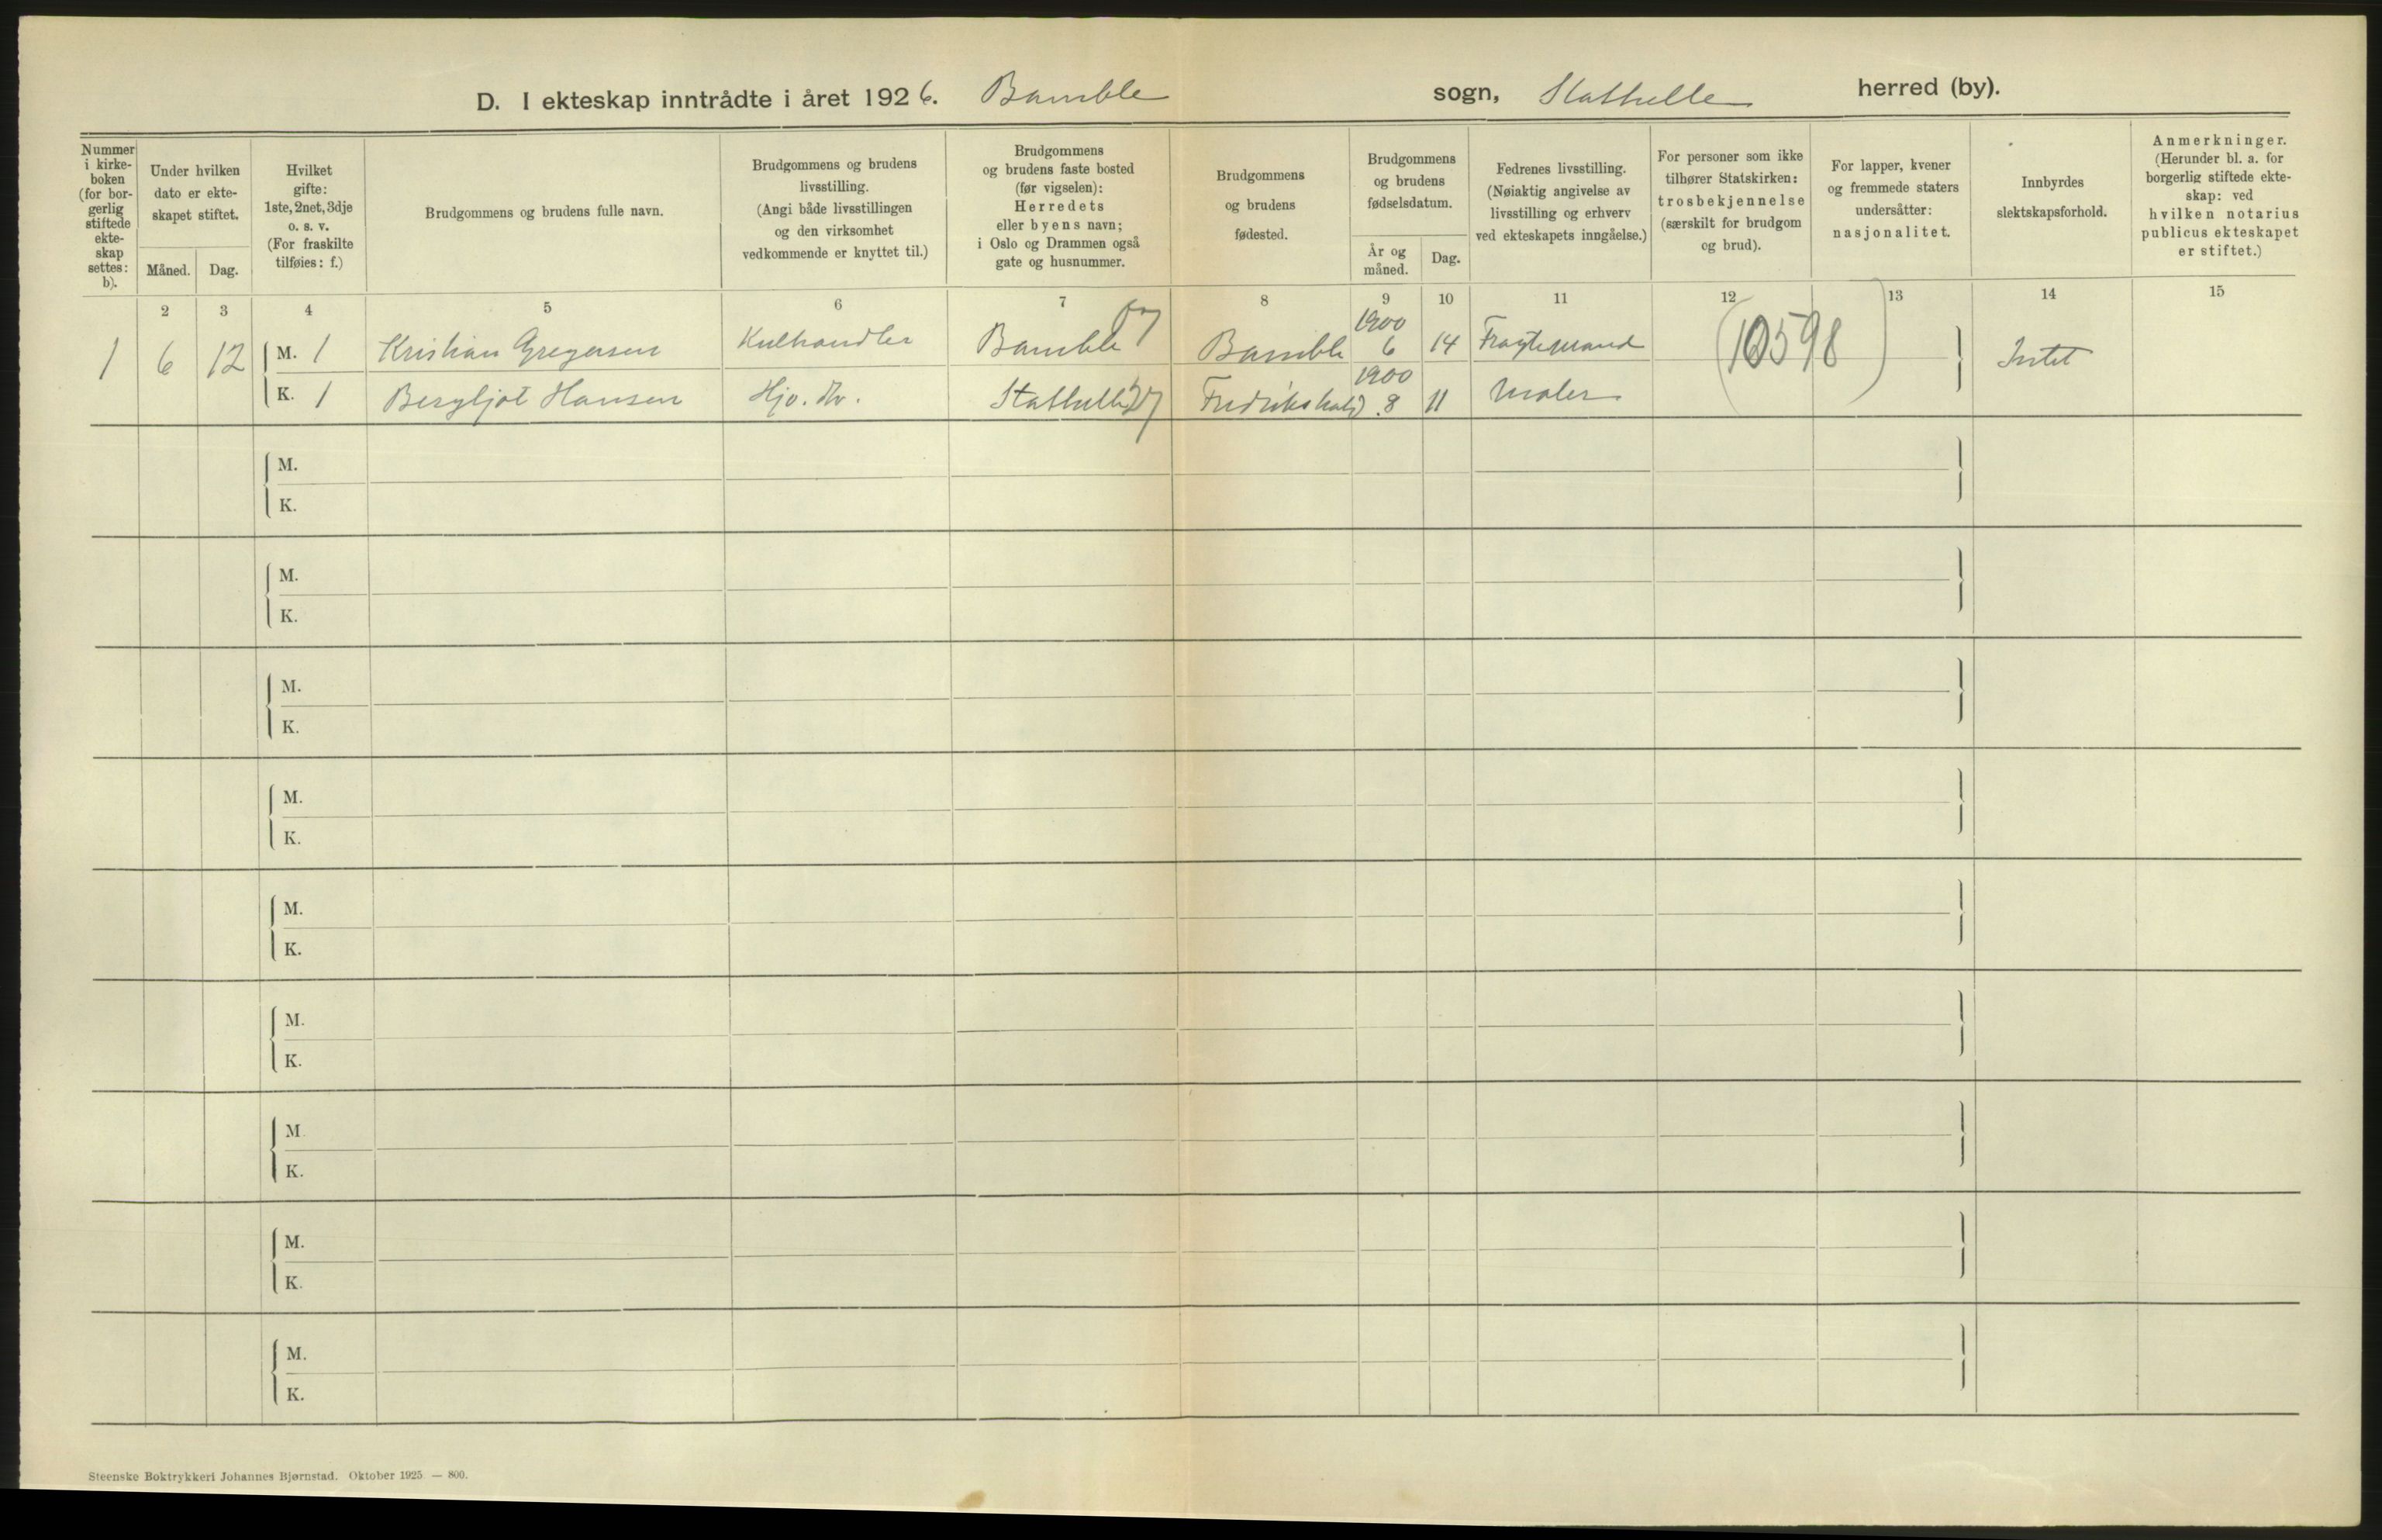 D. I ekteskap inntrådte i året 1926. Bamble sogn, Stathelle herred (by).
Nummer
i kirke-
boken
(for bor-
gerlig
stiftede
ekte-
skap
settes:
b).
Under hvilken
dato er ekte-
skapet stiftet.
Måned. Dag.
Hvilket
gifte:
1ste, 2net, 3dje
o. s. v.
(For fraskilte
tilføies: f.)
Brudgommens og brudens fulle navn.
Brudgommens og brudens
livsstilling.
(Angi både livsstillingen
og den virksomhet
vedkommende er knyttet til.)
Brudgommens
og brudens faste bosted
(før vigselen):
Herredets
eller byens navn;
i Oslo og Drammen også
gate og husnummer.
Brudgommens
og brudens
fødested.
Brudgommens
og brudens
fødselsdatum.
År og
måned.
Dag.
Fedrenes livsstilling.
(Nøiaktig angivelse av
livsstilling og erhverv
ved ekteskapets inngåelse.)
For personer som ikke
tilhører Statskirken:
trosbekjennelse
(særskilt for brudgom
og brud).
For lapper, kvener
og fremmede staters
undersåtter:
nasjonalitet.
Innbyrdes
slektskapsforhold.
Anmerkninger.
(Herunder bl. a. for
borgerlig stiftede ekte-
skap: ved
hvilken notarius
publicus ekteskapet
er stiftet.)
2 3 4 5 6 7 8 9 10 11 12 13 14 15
1 6 12 M. 1 Kristian Gregersen Kulhandler Bamble Bamble 1900 6 14 Fragtemand (10598) Intet
K. 1 Bergljot Hansen Hjv. Stathelle Fredrikshald 1900 8 11 Maler
M.
K.
M.
K.
M.
K.
M.
K.
M.
K.
M.
K.
M
K.
M.
K.
M.
K.
Steenske Boktrykkeri Johannes Bjørnstad. Oktober 1925 — 800.